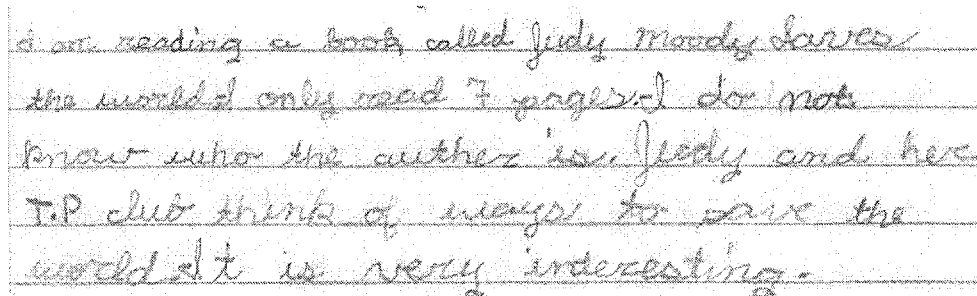 I am reading a book called Judy Moody Saves
the world I only read 7 pages. I do not
know who the auther is. Judy and her
T.P club think of ways to save the
world It is very interesting.